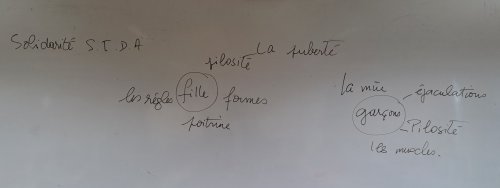 Solidarité S.I.D.A
La puberté
pilosité
les règles fille formes
poitrine
La mue
éjaculations
garçons
Pilosité
les muscles.